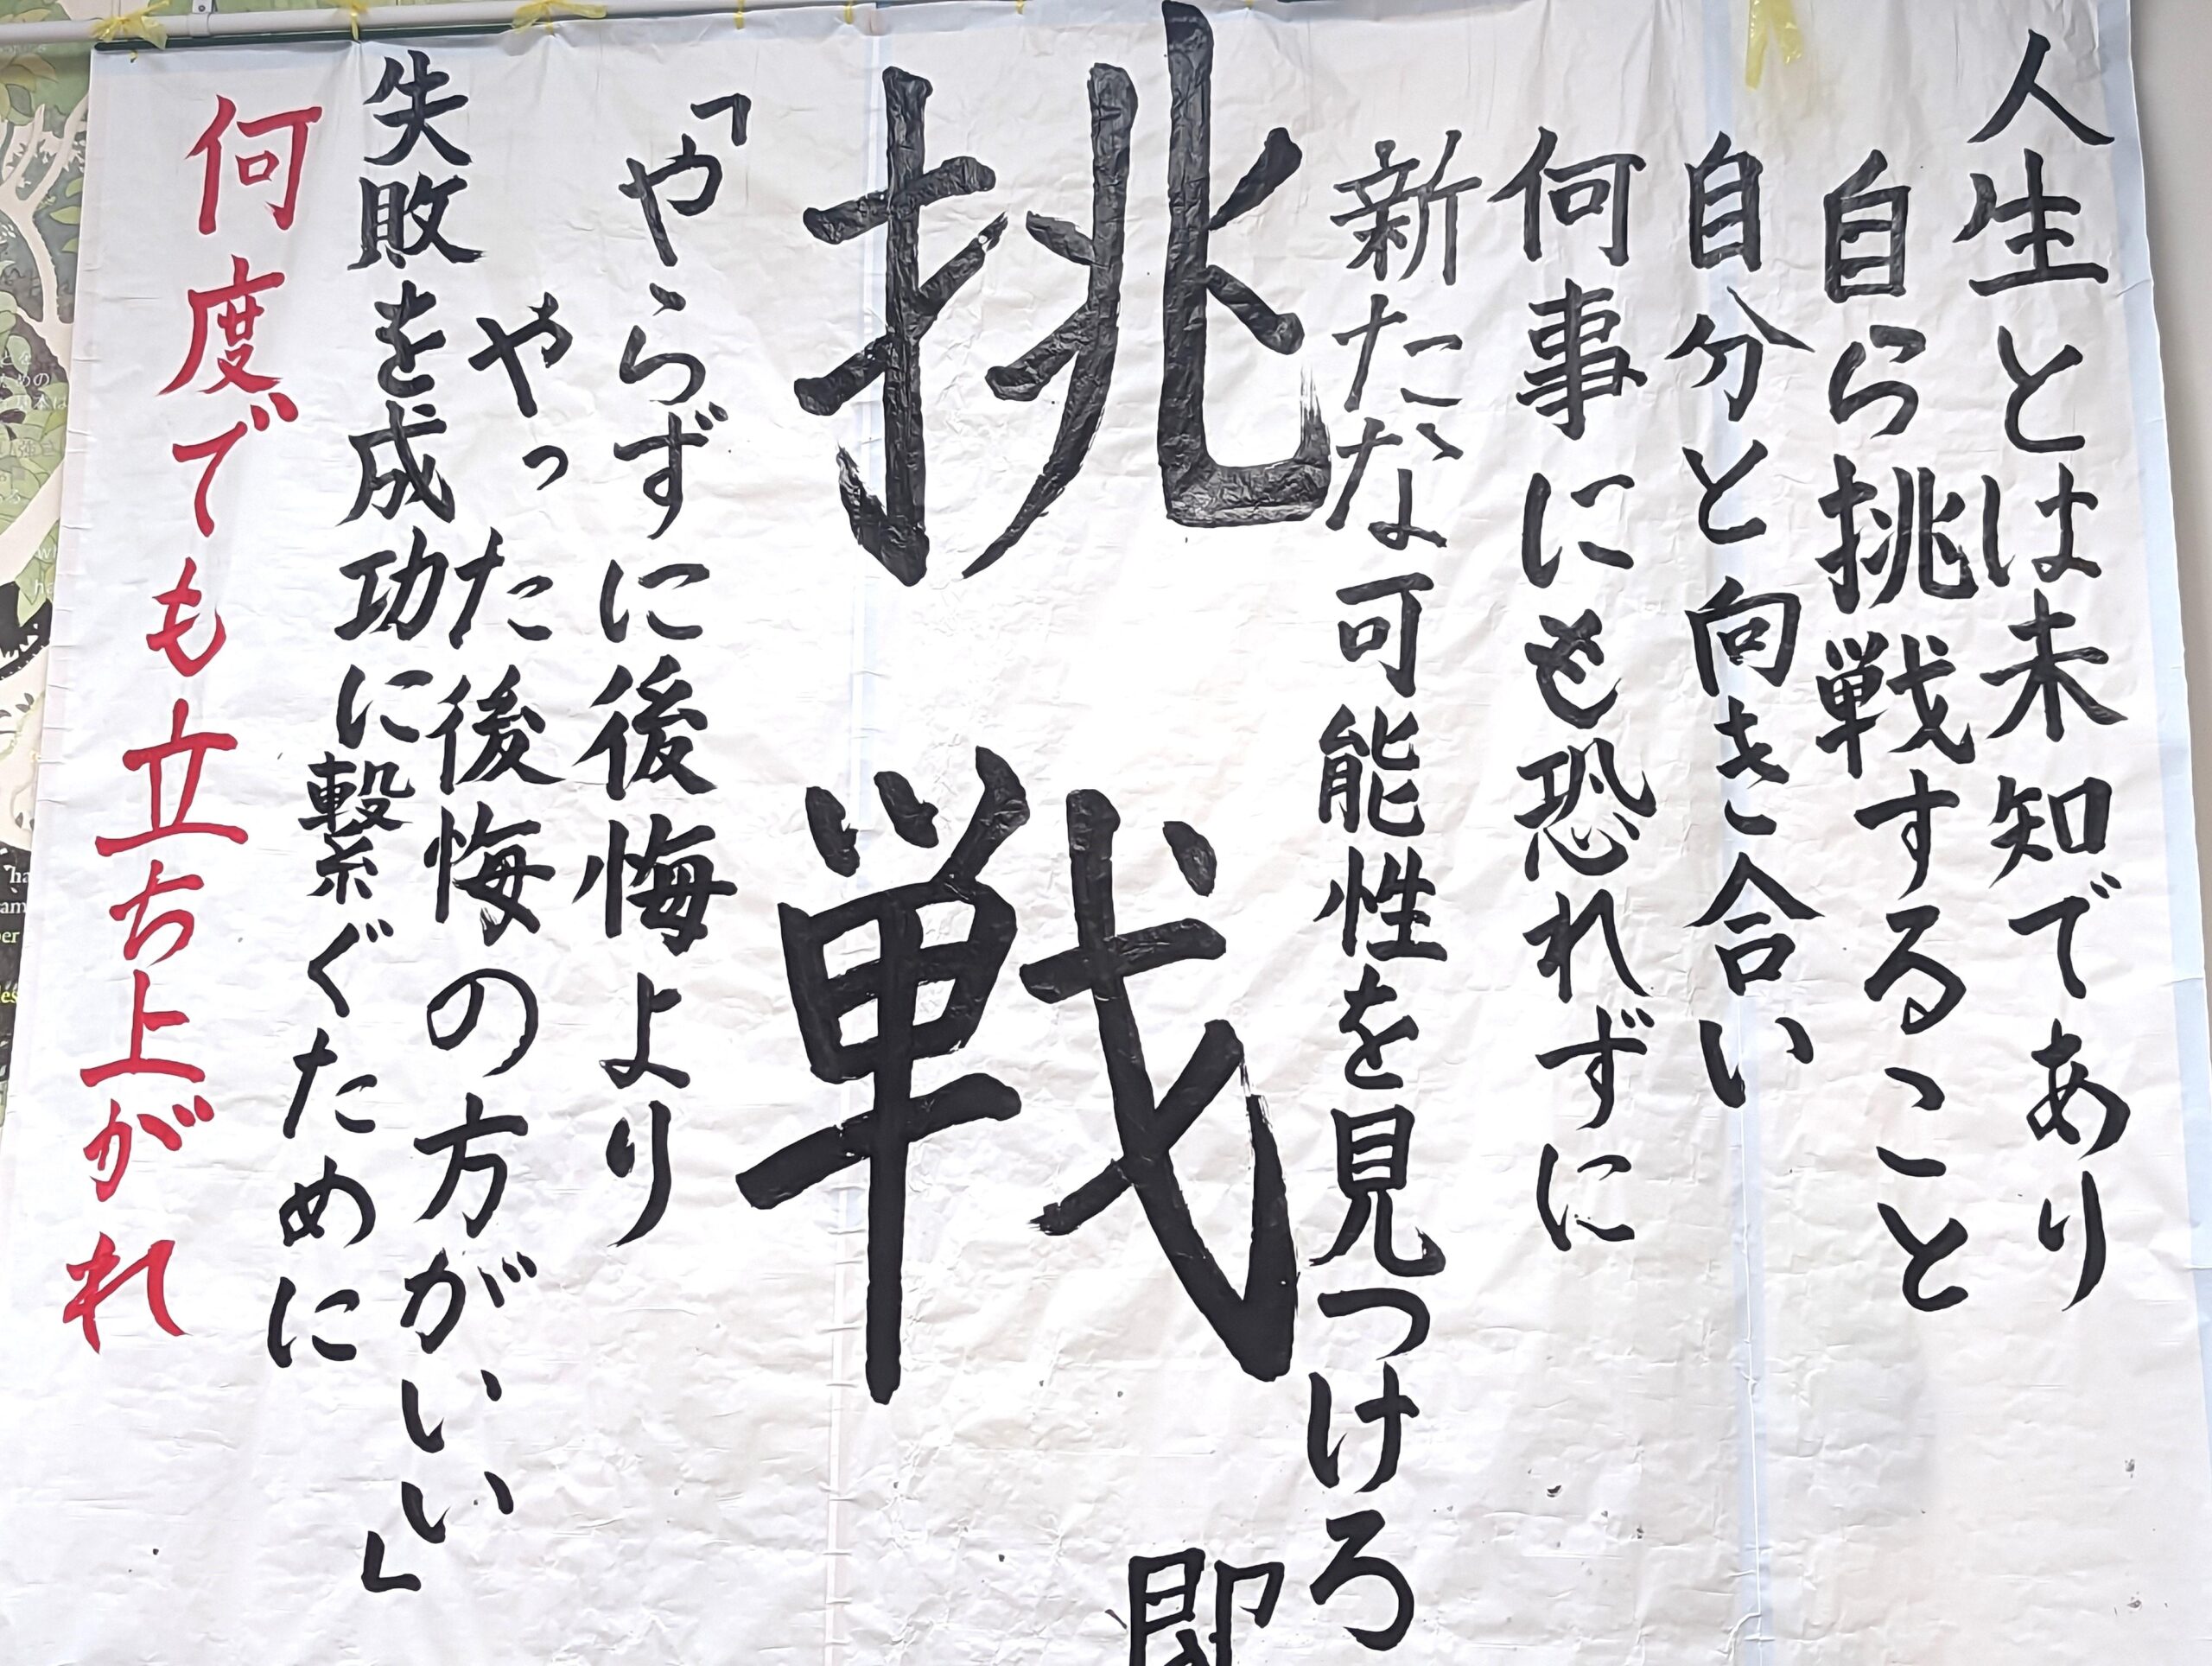 人生とは未知であり
自ら挑戦すること
自分と向き合い
何事にも恐れずに
新たな可能性を見つけろ
挑戦
「やらずに後悔より
やった後悔の方がいい」
失敗を成功に繋ぐために
何度でも立ち上がれ